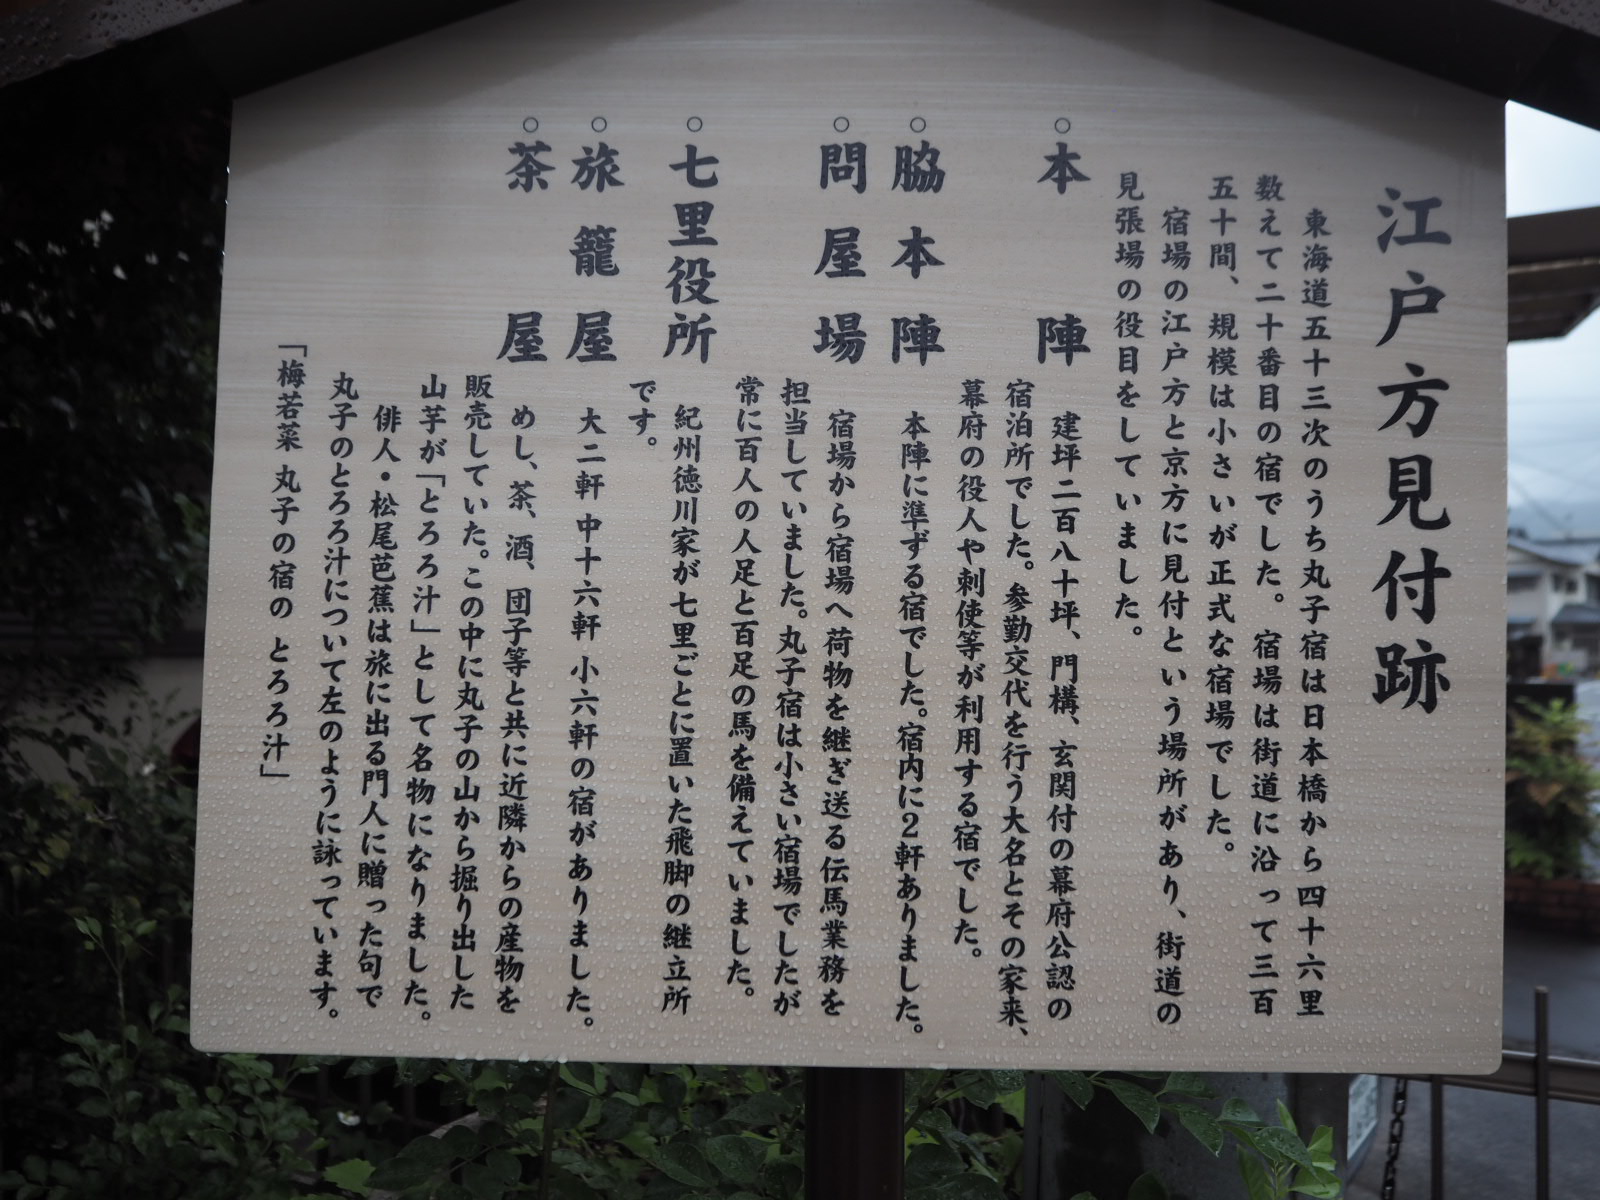 江戸方見付跡
東海道五十三次のうち丸子宿は日本橋から四十六里
数えて二十番目の宿でした。宿場は街道に沿って三百
五十間、規模は小さいが正式な宿場でした。
宿場の江戸方と京方に見付という場所があり、街道の
見張場の役目をしていました。
○本陣
建坪二百八十坪、門構、玄関付の幕府公認の
宿泊所でした。参勤交代を行う大名とその家来、
幕府の役人や刺使等が利用する宿でした。
○脇本陣
本陣に準ずる宿でした。宿内に2軒ありました。
○問屋場
宿場から宿場へ荷物を継ぎ送る伝馬業務を
担当していました。丸子宿は小さい宿場でしたが
常に百人の人足と百足の馬を備えていました。
○七里役所
紀州徳川家が七里ごとに置いた飛脚の継立所
です。
○旅籠屋
大二軒 中十六軒 小六軒の宿がありました。
○茶屋
めし、茶、酒、団子等と共に近隣からの産物を
販売していた。この中に丸子の山から掘り出した
山芋が「とろろ汁」として名物になりました。
俳人・松尾芭蕉は旅に出る門人に贈った句で
丸子のとろろ汁について左のように詠っています。
「梅若菜 丸子の宿の とろろ汁」